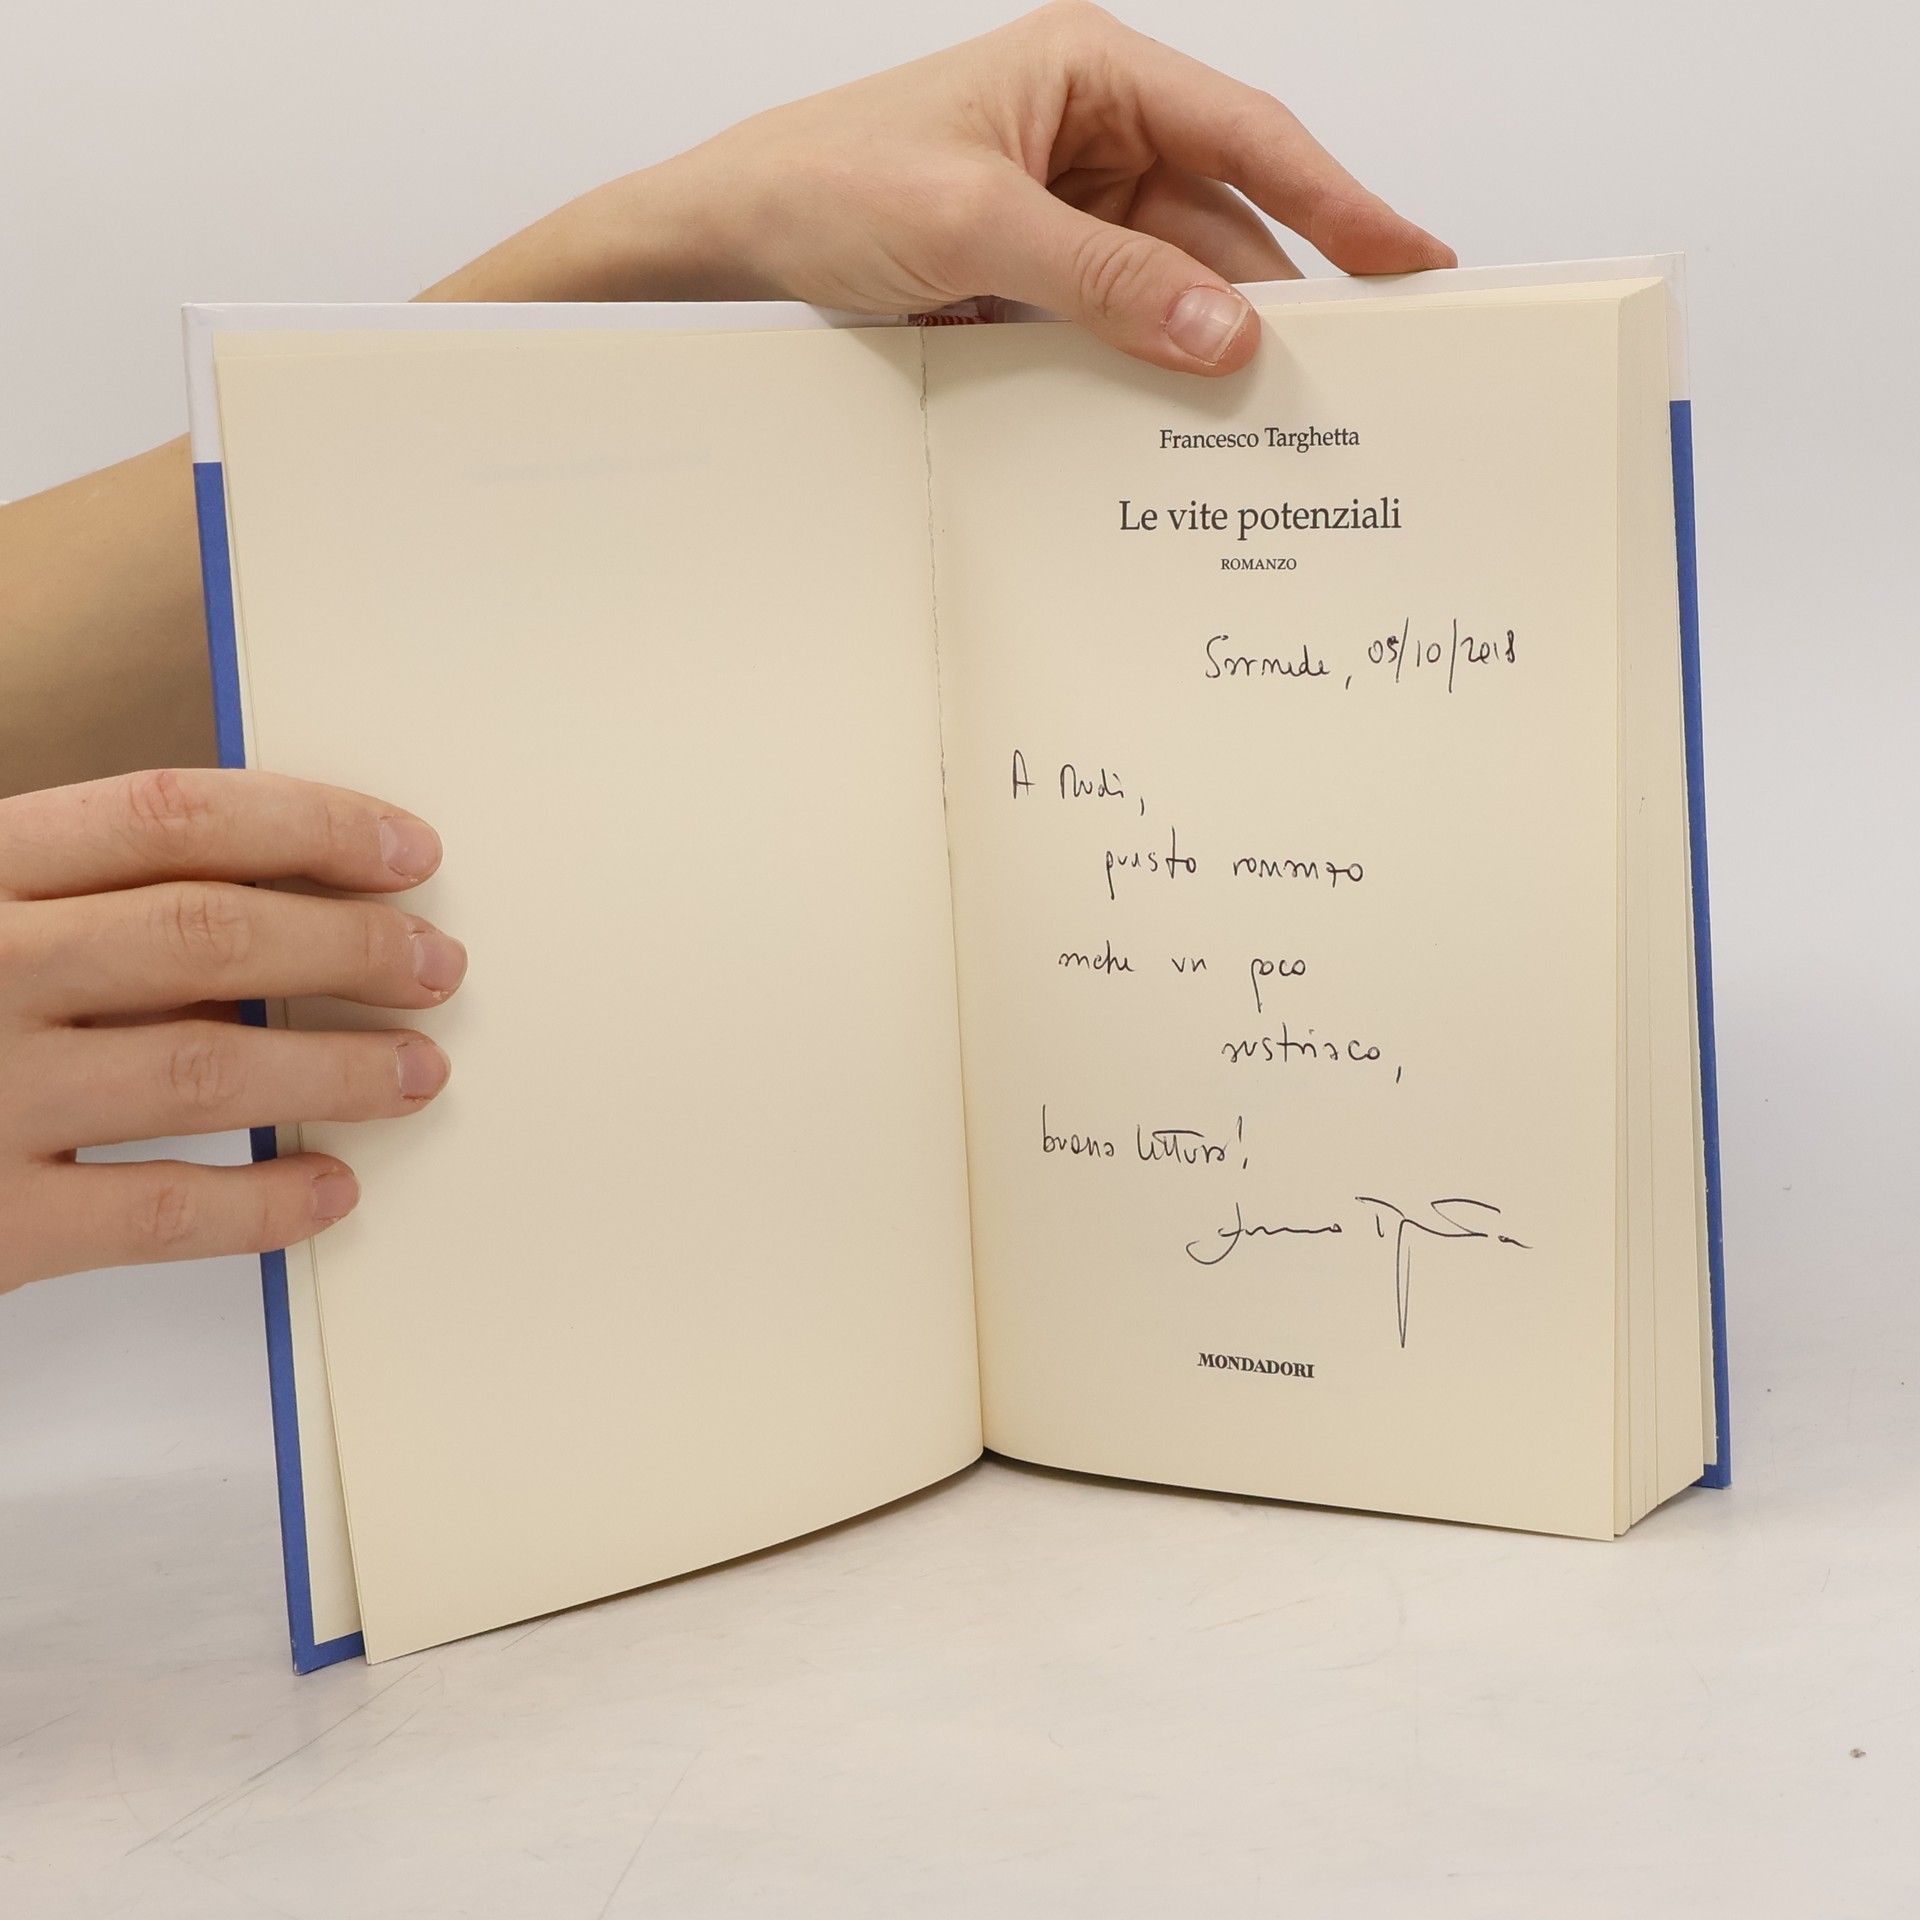 Francesco Targhetta
Le vite potenziali
ROMANZO
Sarmede, 05/10/2018
A Rudi,
questo romanzo
anche un poco
austriaco,
buona lettura!
Francesco Targhetta
MONDADORI